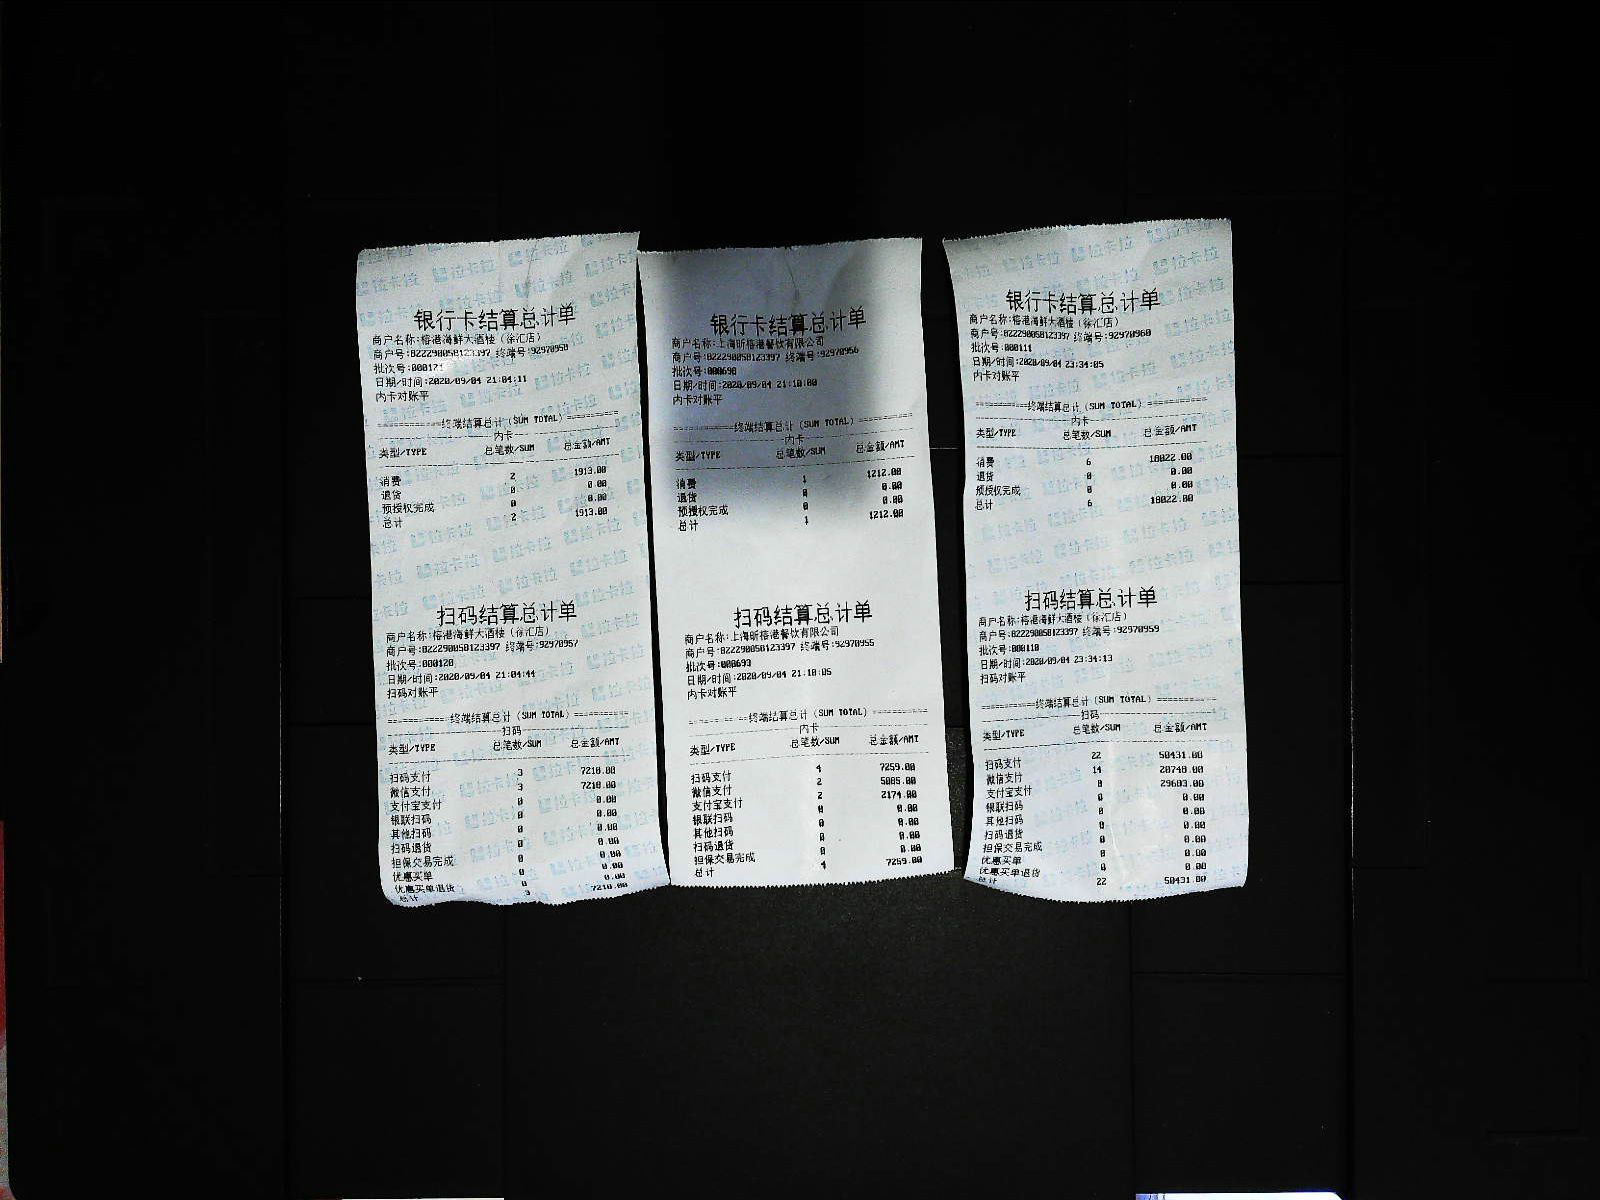 银行卡结算总计单
商户名称:榕港海鲜大酒楼（徐汇店）
商户号:822290058123397 终端号:92970958
批次号:000121
日期/时间:2020/09/04 21:04:11
内卡对账平
==========终端结算总计(SUM TOTAL)==========
内卡
类型/TYPE 总笔数/SUM 总金额/AMT
消费 2 1913.00
退货 0 0.00
预授权完成 0 0.00
总计 2 1913.00
扫码结算总计单
商户名称:榕港海鲜大酒楼（徐汇店）
商户号:822290058123397 终端号:92970957
批次号:000120
日期/时间:2020/09/04 21:04:44
扫码对账平
==========终端结算总计(SUM TOTAL)==========
扫码
类型/TYPE 总笔数/SUM 总金额/AMT
扫码支付 3 7210.00
微信支付 3 7210.00
支付宝支付 0 0.00
银联扫码 0 0.00
其他扫码 0 0.00
扫码退货 0 0.00
担保交易完成 0 0.00
优惠买单 0 0.00
优惠买单退货 0 0.00
总计 3 7210.00
银行卡结算总计单
商户名称:上海昕榕港餐饮有限公司
商户号:822290058123397 终端号:92970956
批次号:000690
日期/时间:2020/09/04 21:10:00
内卡对账平
==========终端结算总计(SUM TOTAL)==========
内卡
类型/TYPE 总笔数/SUM 总金额/AMT
消费 1 1212.00
退货 0 0.00
预授权完成 0 0.00
总计 1 1212.00
扫码结算总计单
商户名称:上海昕榕港餐饮有限公司
商户号:822290058123397 终端号:92970955
批次号:000693
日期/时间:2020/09/04 21:10:05
内卡对账平
==========终端结算总计(SUM TOTAL)==========
内卡
类型/TYPE 总笔数/SUM 总金额/AMT
扫码支付 4 7259.00
微信支付 2 5085.00
支付宝支付 2 2174.00
银联扫码 0 0.00
其他扫码 0 0.00
扫码退货 0 0.00
担保交易完成 0 0.00
总计 4 7259.00
银行卡结算总计单
商户名称:榕港海鲜大酒楼（徐汇店）
商户号:822290058123397 终端号:92970960
批次号:000111
日期/时间:2020/09/04 23:34:05
内卡对账平
==========终端结算总计(SUM TOTAL)==========
内卡
类型/TYPE 总笔数/SUM 总金额/AMT
消费 6 18022.00
退货 0 0.00
预授权完成 0 0.00
总计 6 18022.00
扫码结算总计单
商户名称:榕港海鲜大酒楼（徐汇店）
商户号:822290058123397 终端号:92970959
批次号:000110
日期/时间:2020/09/04 23:34:13
扫码对账平
==========终端结算总计(SUM TOTAL)==========
扫码
类型/TYPE 总笔数/SUM 总金额/AMT
扫码支付 22 50431.00
微信支付 14 20748.00
支付宝支付 8 29683.00
银联扫码 0 0.00
其他扫码 0 0.00
扫码退货 0 0.00
担保交易完成 0 0.00
优惠买单 0 0.00
优惠买单退货 0 0.00
总计 22 50431.00